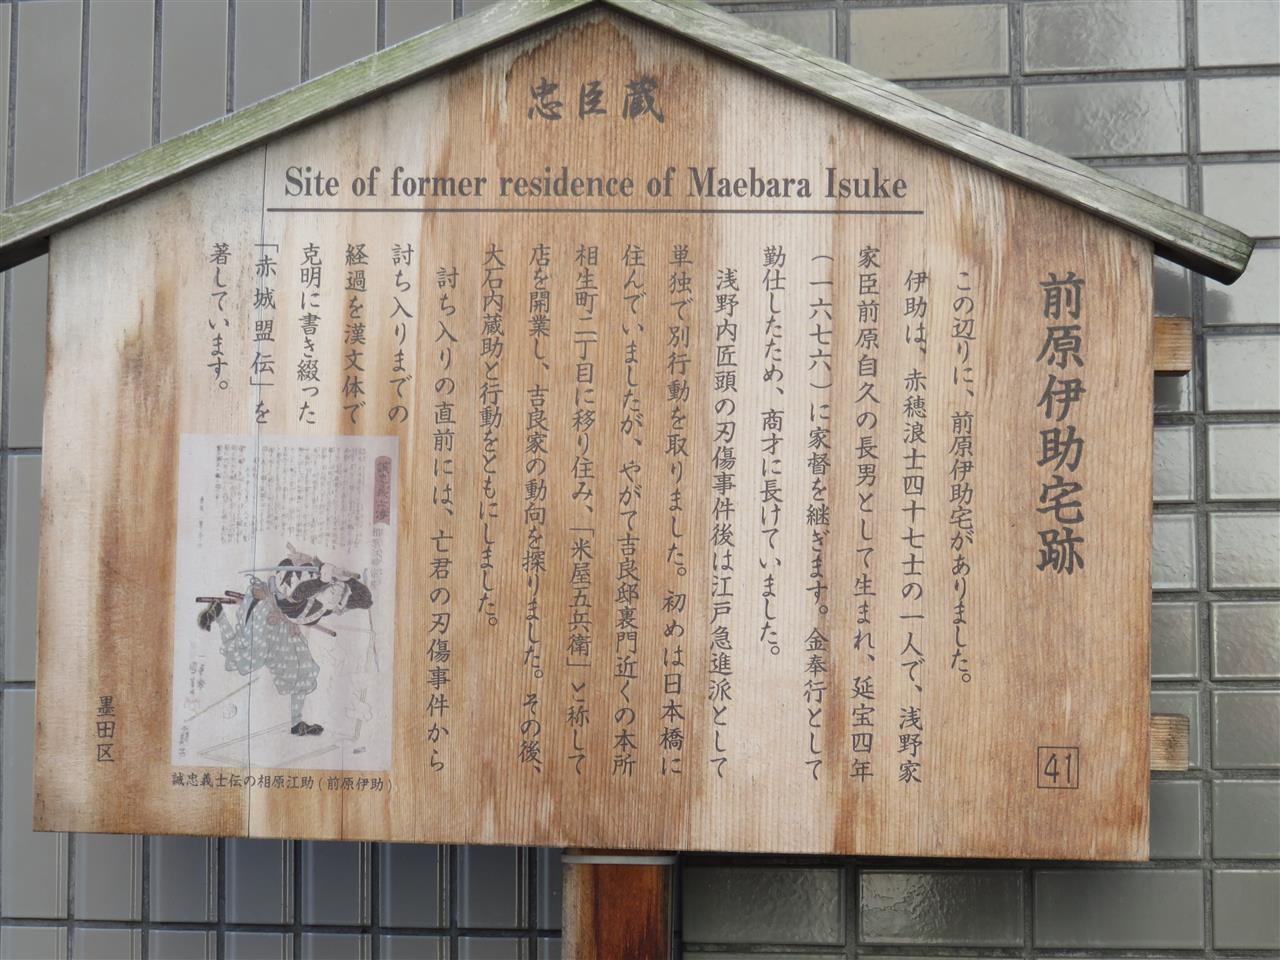 忠臣蔵
Site of former residence of Maebara Isuke
前原伊助宅跡
41
この辺りに、前原伊助宅がありました。
伊助は、赤穂浪士四十七士の一人で、浅野家
家臣前原自久の長男として生まれ、延宝四年
(一六七六)に家督を継ぎます。金奉行として
勤仕したため、商才に長けていました。
浅野内匠頭の刃傷事件後は江戸急進派として
単独で別行動を取りました。初めは日本橋に
住んでいましたが、やがて吉良邸裏門近くの本所
相生町二丁目に移り住み、「米屋五兵衛」と称して
店を開業し、吉良家の動向を探りました。その後、
大石内蔵助と行動をともにしました。
討ち入りの直前には、亡君の刃傷事件から
討ち入りまでの
経過を漢文体で
克明に書き綴った
「赤城盟伝」を
著しています。
誠忠義士伝の相原江助(前原伊助)
墨田区